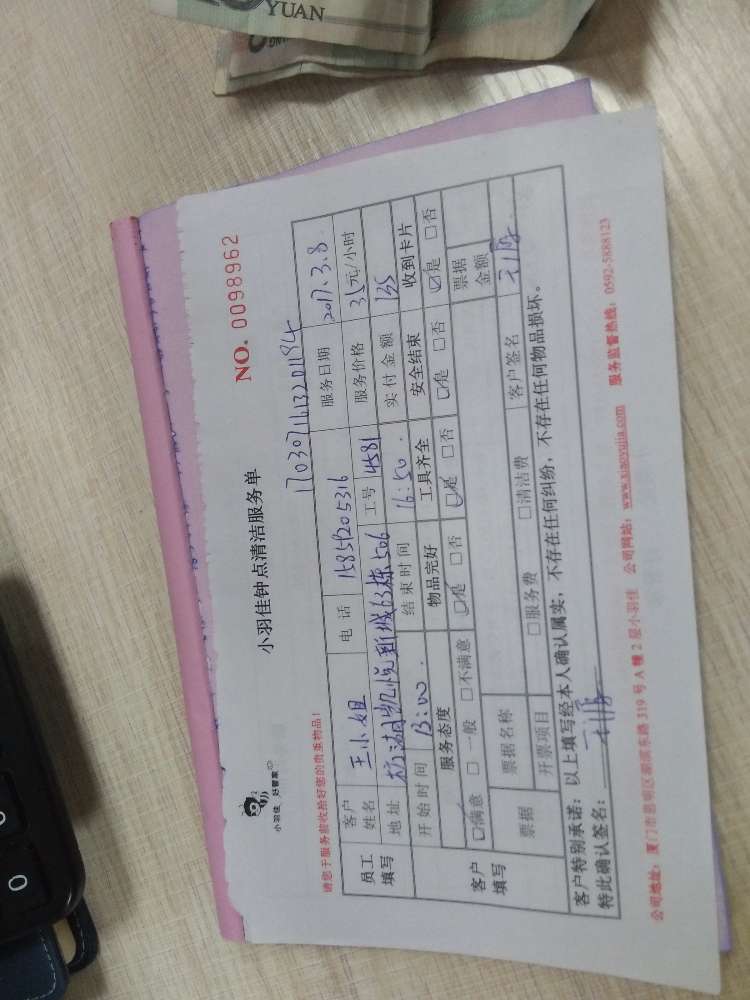 YUAN
小羽佳 好管家
小羽佳钟点清洁服务单
NO. 0098962
请您于服务前收拾好您的贵重物品!
1703071613201184
员工填写
客户姓名 王小姐 电话 15859205316 服务日期 2017.3.8
地址 新城63栋506 工号 4581 服务价格 35元/小时
开始时间 13:00. 结束时间 16:50. 实付金额 135
客户填写
服务态度 物品完好 工具齐全 安全结束 收到卡片
☑满意 □一般 □不满意 ☑是 □否 ☑是 □否 ☑是 □否 ☑是 □否
票据 票据名称 票据金额
开票项目 □服务费 □清洁费 客户签名
客户特别承诺:以上填写经本人确认属实,不存在任何纠纷,不存在任何物品损坏。
特此确认签名:
公司地址:厦门市思明区湖滨东路 319 号 A 幢 2 层小羽佳 公司网站:www.xiaoyujia.com 服务监督热线:0592-5888123
0